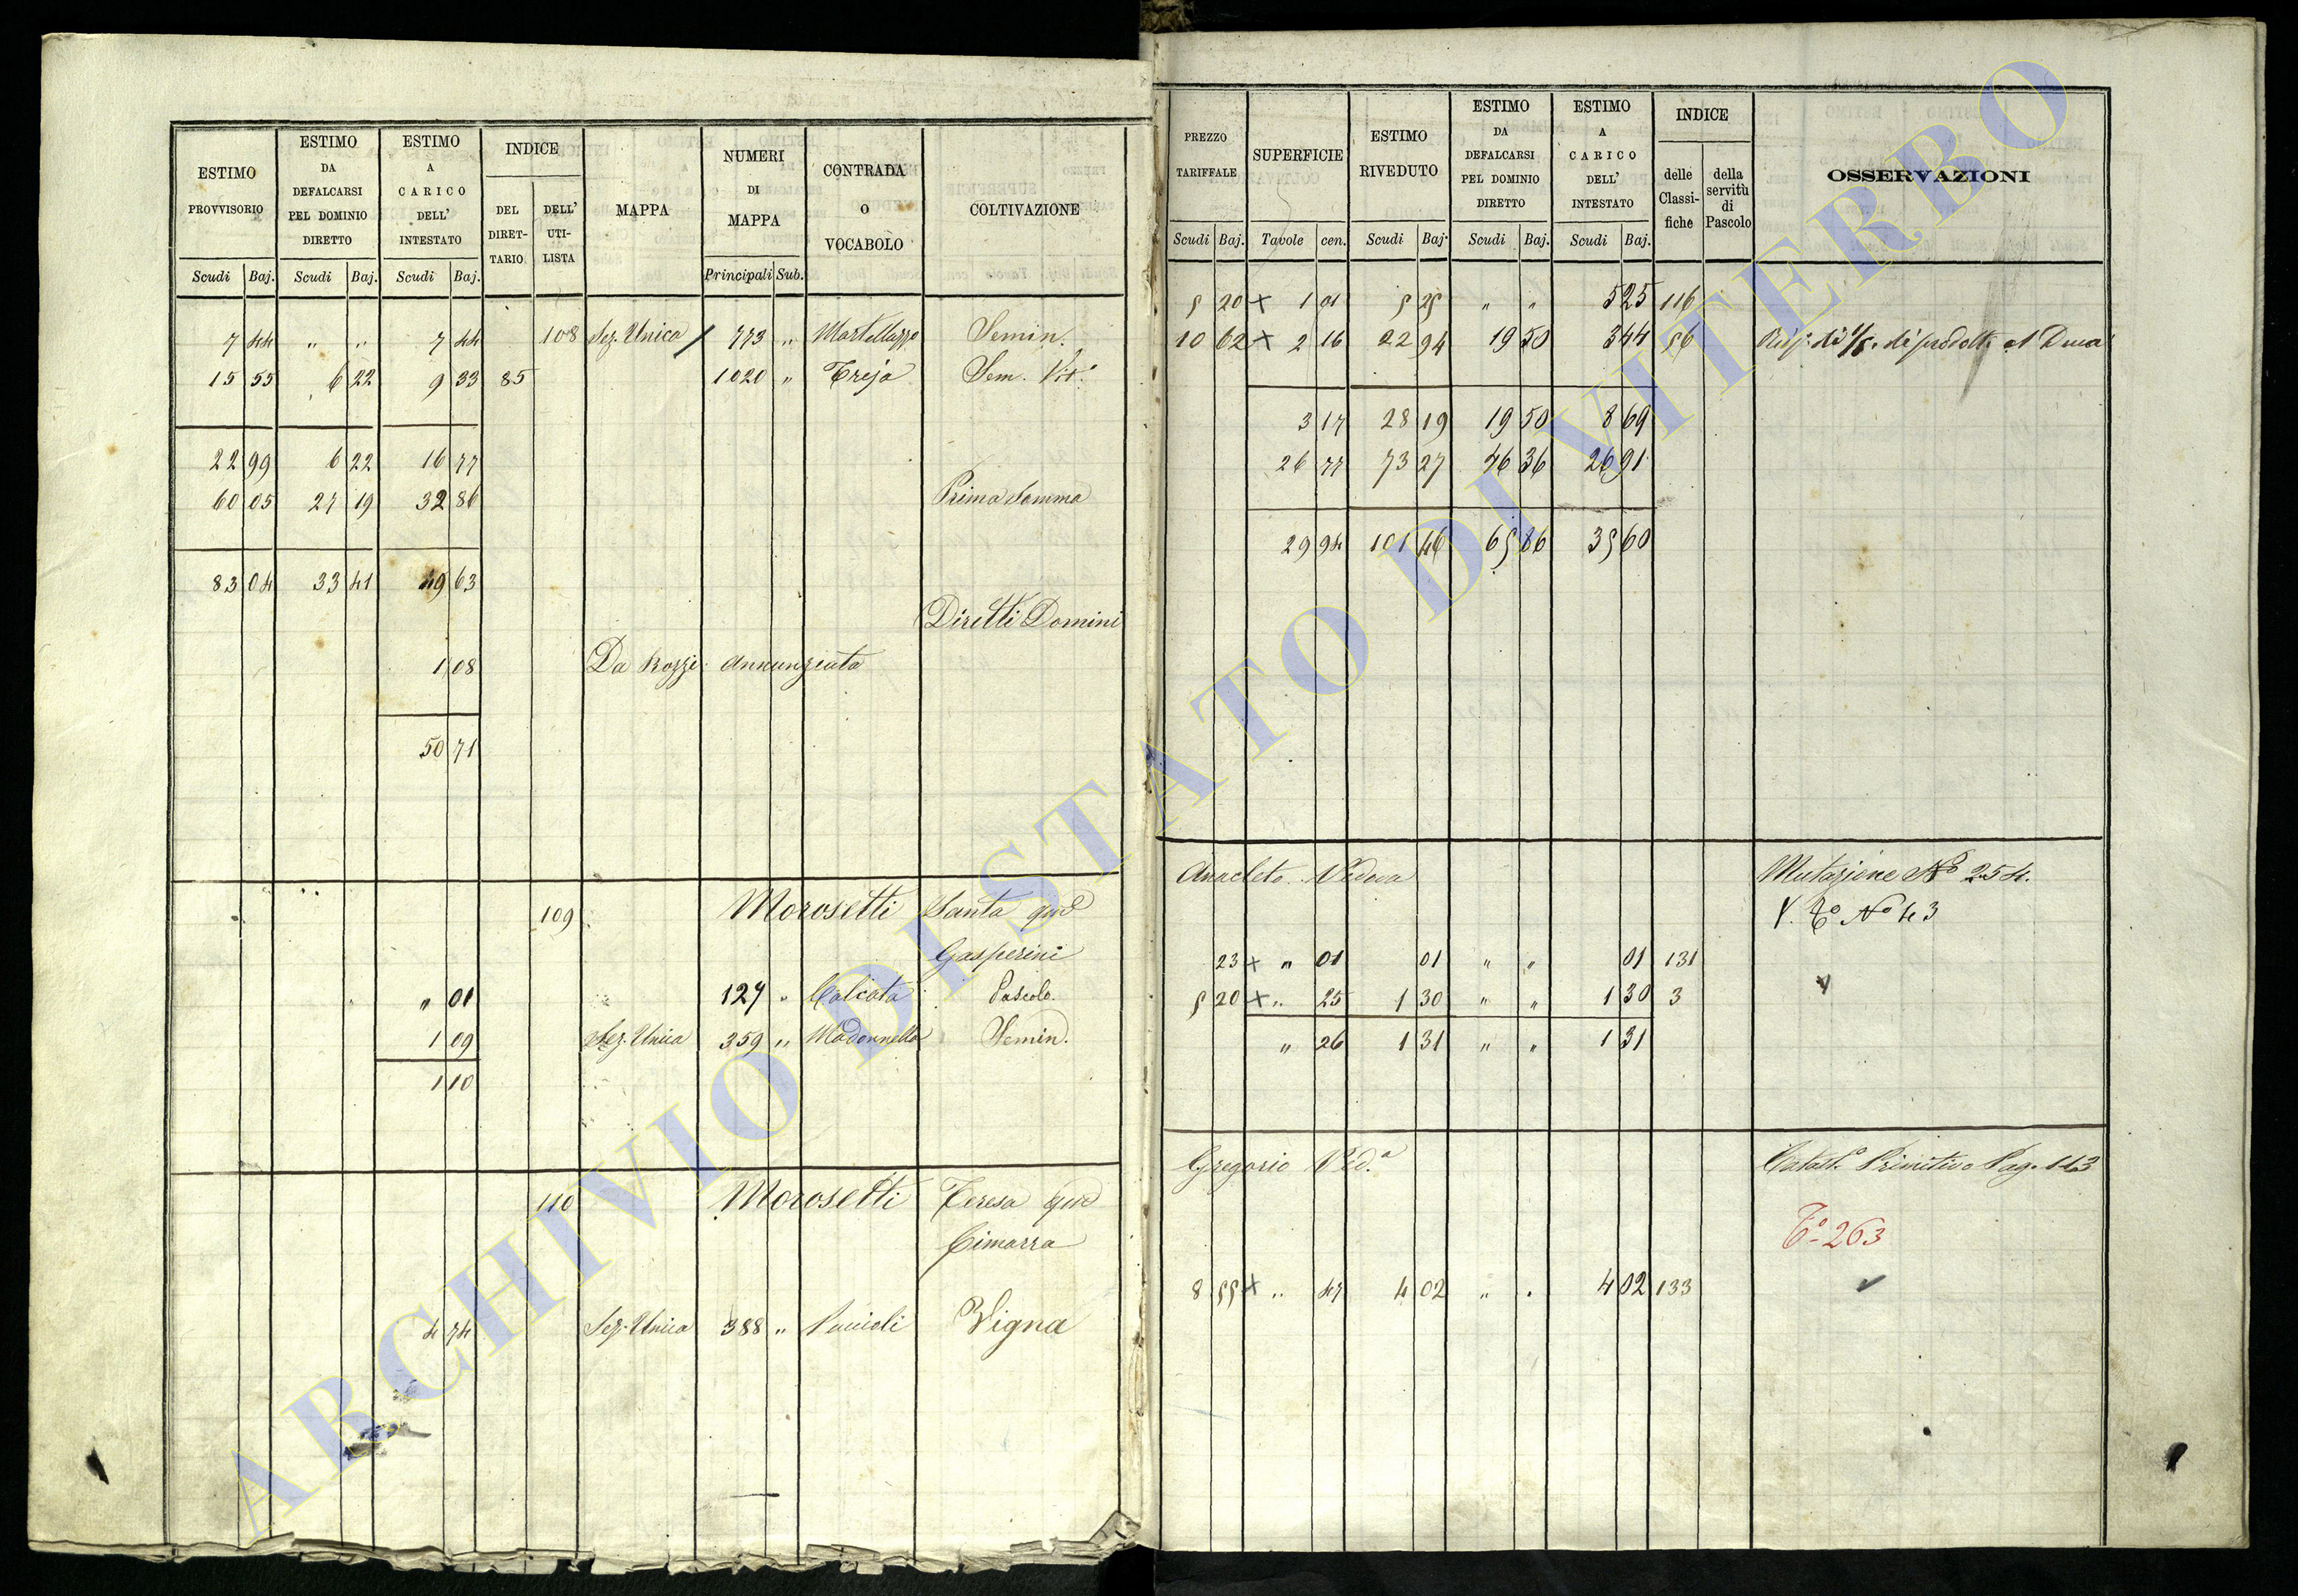 ESTIMO PROVVISORIO
ESTIMO DA DEFALCARSI PEL DOMINIO DIRETTO
ESTIMO A CARICO DELL' INTESTATO
INDICE
DEL DIRET-TARIO
DELL' UTI-LISTA
MAPPA
NUMERI DI MAPPA
CONTRADA O VOCABOLO
COLTIVAZIONE
Scudi Baj. Scudi Baj. Scudi Baj. Principali Sub.
7 44 " " 7 44 108 Sez. Unica / 773 " Martellazzo Semin.
15 55 6 22 9 33 85 1020 " Treja Sem. Vit.
22 99 6 22 16 77
60 05 27 19 32 86 Prima Somma
83 04 33 41 49 63
Diretti Domini
1 08 Da Rozzi Annunziata
50 71
109 Morosetti Santa qud
Gasperini
" 01 127 " Calcata Pascolo.
1 09 Sez. Unica 359 " Madonnella Semin.
1 10
110 Morosetti Teresa qud
Cimarra
4 74 Sez. Unica 388 " Puccioli Vigna
PREZZO TARIFFALE
SUPERFICIE
ESTIMO RIVEDUTO
ESTIMO DA DEFALCARSI PEL DOMINIO DIRETTO
ESTIMO A CARICO DELL' INTESTATO
INDICE
delle Classi-fiche
della servitù di Pascolo
OSSERVAZIONI
Scudi Baj. Tavole cen. Scudi Baj. Scudi Baj. Scudi Baj.
5 20 x 1 01 5 25 " " 5 25 116
10 62 x 2 16 22 94 19 50 3 44 56 Risp. di 1/5. di prodotti al Duca
3 17 28 19 19 50 8 69
26 77 73 27 46 36 26 91
29 94 101 46 65 86 35 60
Anacleto Vedova Mutazione No 254.
V. To No 43
23 x " 01 01 " " 01 131
5 20 x " 25 1 30 " " 1 30 3
" 26 1 31 " " 1 31
Gregorio Ved.a Catast.o Primitivo Pag. 113
To 263
8 55 x " 47 4 02 " " 4 02 133
ARCHIVIO DI STATO DI VITERBO